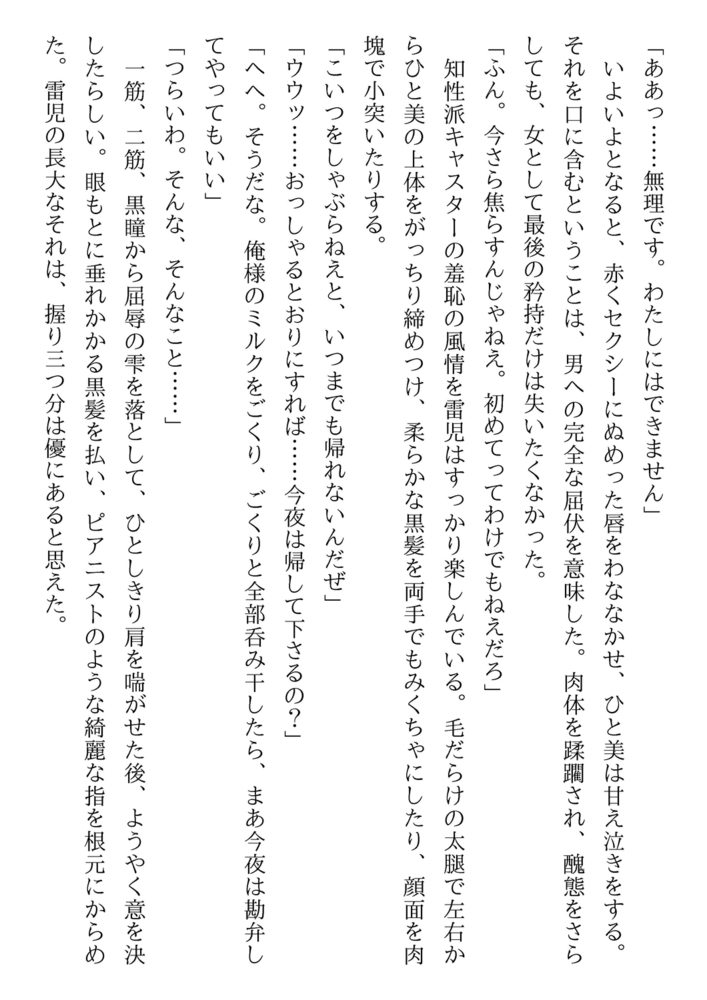 「ああっ……無理です。わたしにはできません」
　いよいよとなると、赤くセクシーにぬめった唇をわななかせ、ひと美は甘え泣きをする。
それを口に含むということは、男への完全な屈伏を意味した。肉体を蹂躙され、醜態をさら
しても、女として最後の矜持だけは失いたくなかった。
「ふん。今さら焦らすんじゃねえ。初めてってわけでもねえだろ」
　知性派キャスターの羞恥の風情を雷児はすっかり楽しんでいる。毛だらけの太腿で左右か
らひと美の上体をがっちり締めつけ、柔らかな黒髪を両手でもみくちゃにしたり、顔面を肉
塊で小突いたりする。
「こいつをしゃぶらねえと、いつまでも帰れないんだぜ」
「ウウッ……おっしゃるとおりにすれば……今夜は帰して下さるの？」
「へへ。そうだな。俺様のミルクをごくり、ごくりと全部呑み干したら、まあ今夜は勘弁し
てやってもいい」
「つらいわ。そんな、そんなこと……」
　一筋、二筋、黒瞳から屈辱の雫を落として、ひとしきり肩を喘がせた後、ようやく意を決
したらしい。眼もとに垂れかかる黒髪を払い、ピアニストのような綺麗な指を根元にからめ
た。雷児の長大なそれは、握り三つ分は優にあると思えた。